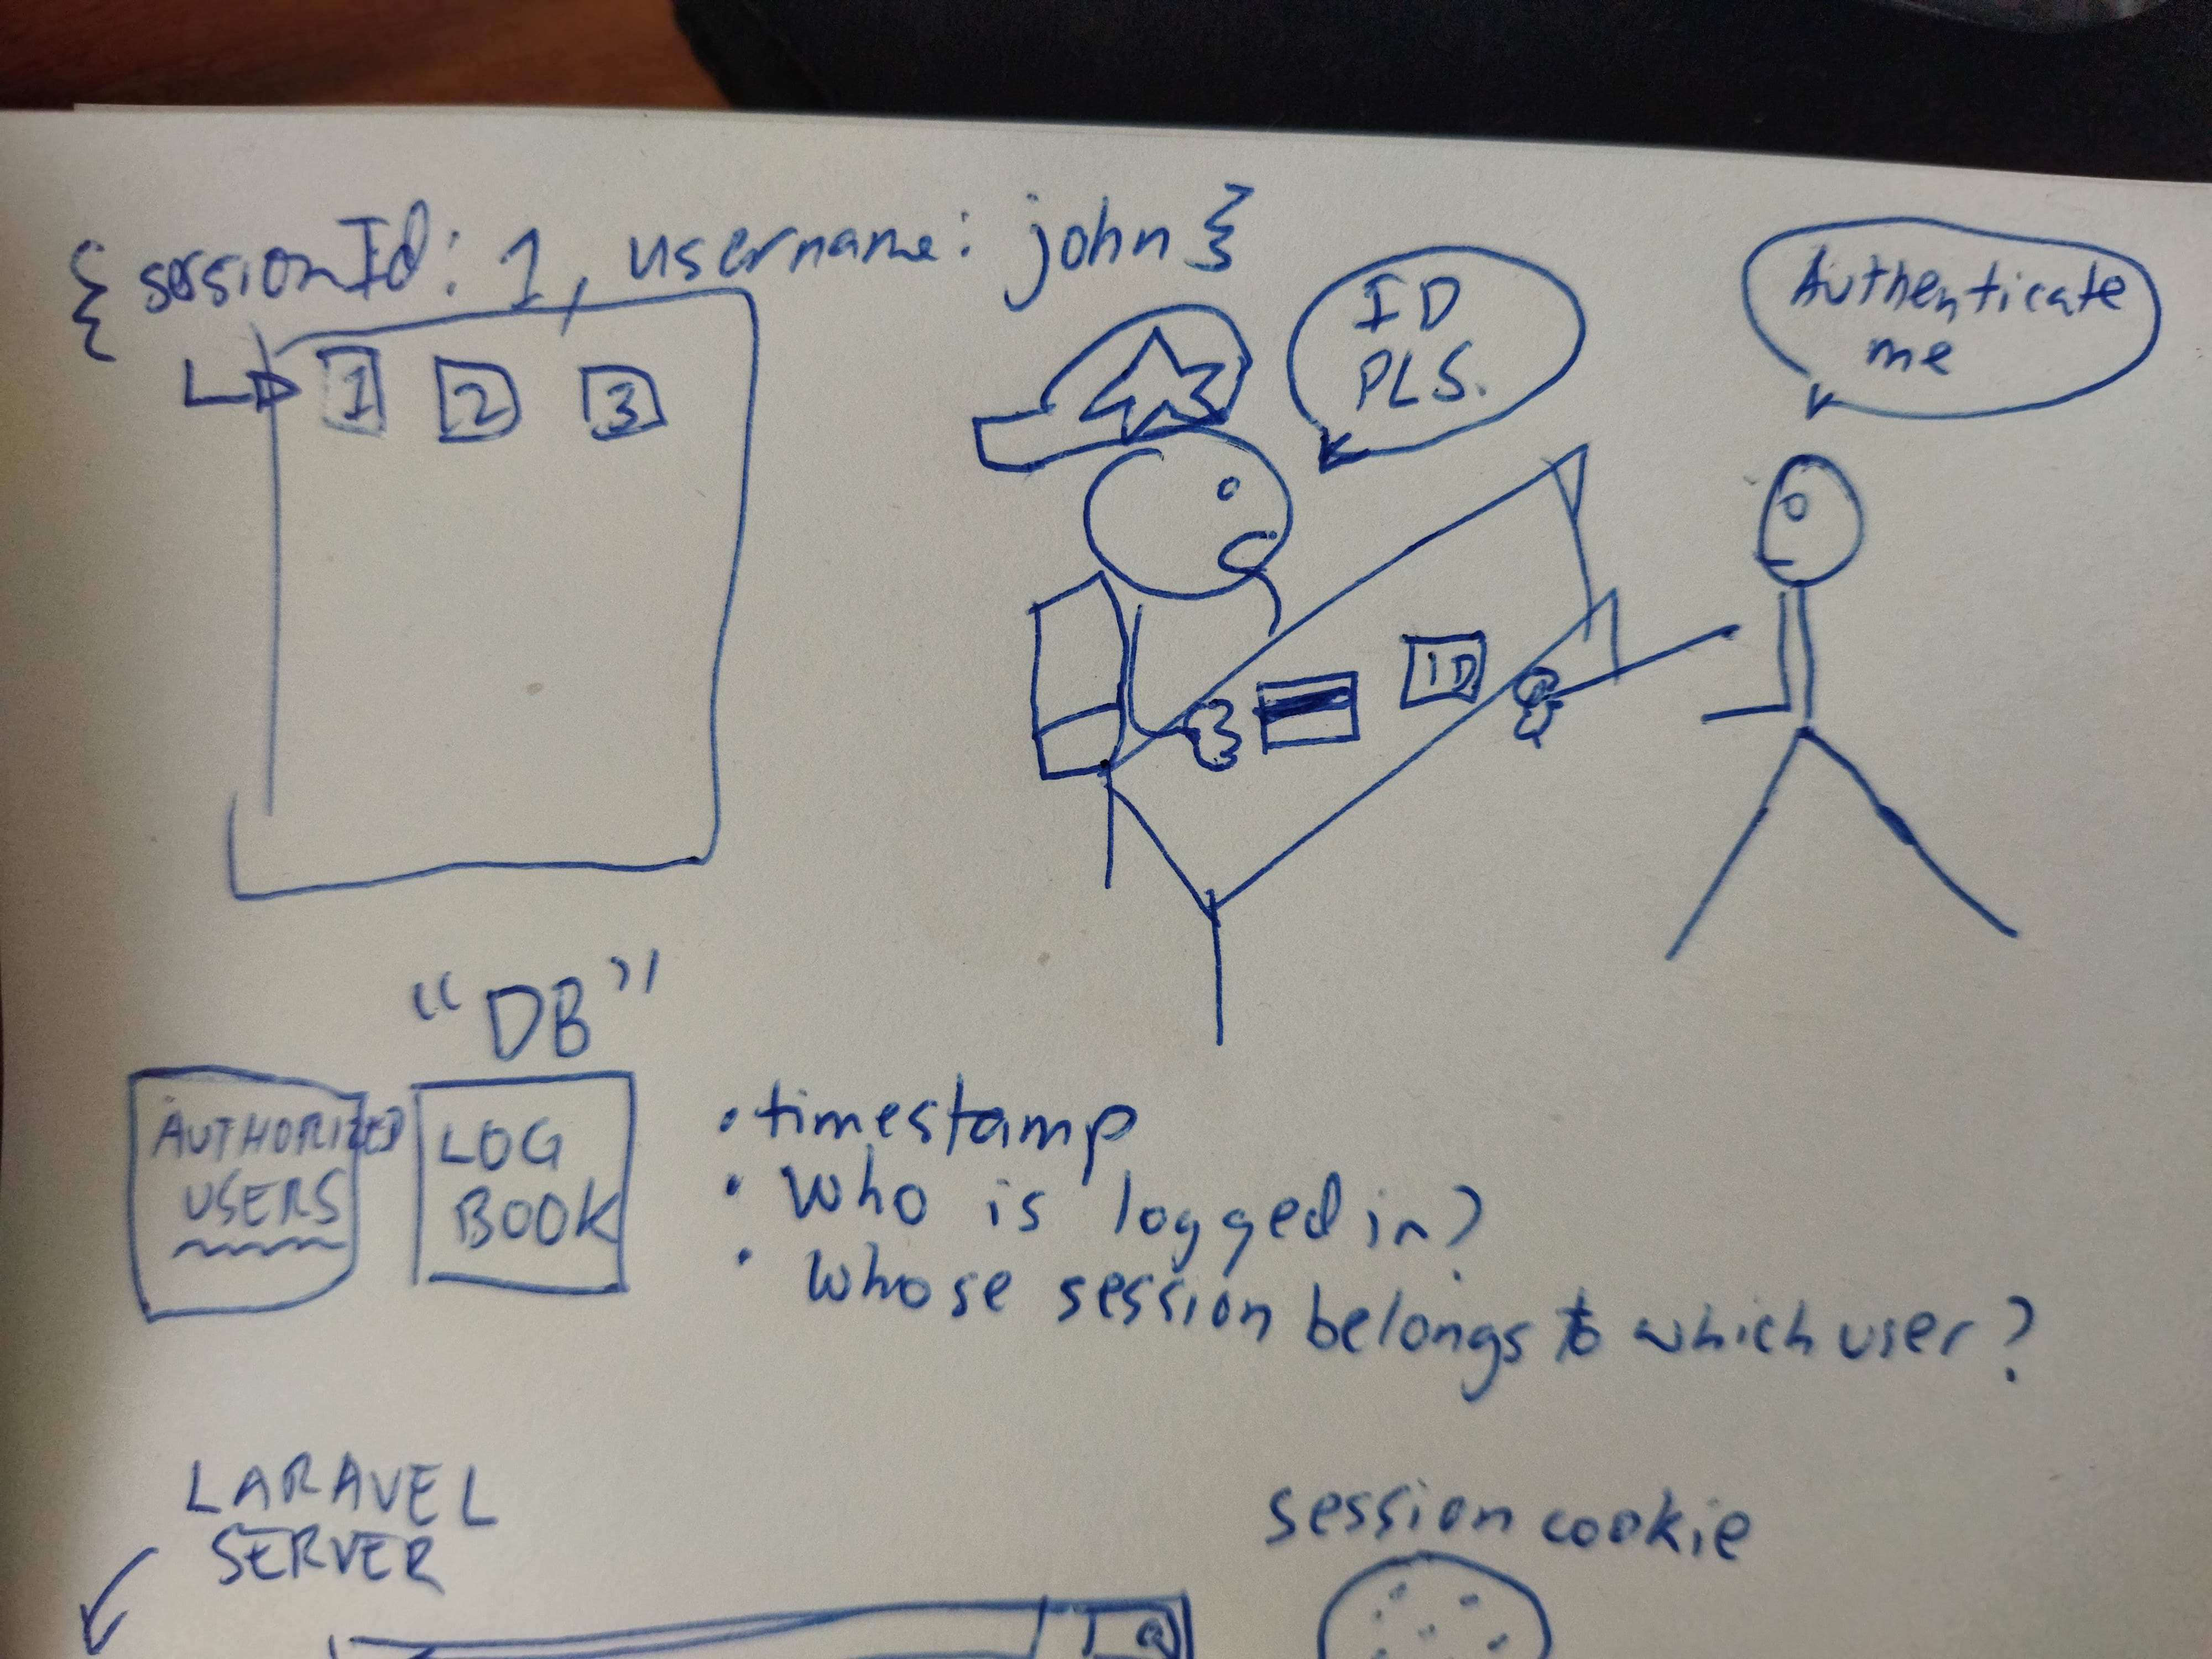 {sessionId: 1, username: john}
1 2 3
ID
PLS.
Authenticate
me
ID
"DB"
AUTHORIZED
USERS
LOG
BOOK
• timestamp
• Who is logged in?
• Whose session belongs to which user?
LARAVEL
SERVER
session cookie